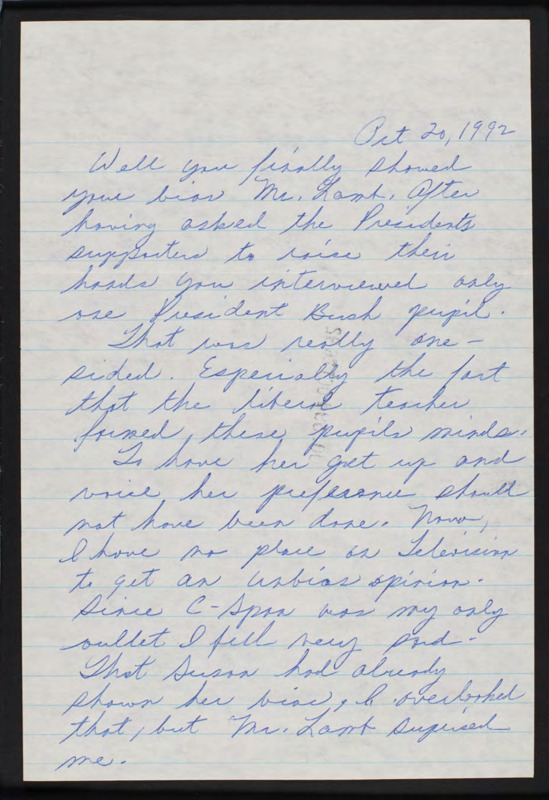 Oct 20, 1992
Well you finally showed
your bias Mr. Lamb. After
having asked the Presidents
supporters to raise their
hands you interviewed only
one President Bush pupil.
That was really one-
sided. Especially the fact
that the liberal teacher
formed these pupils minds.
To have her get up and
voice her preference should
not have been done. Now,
I have no place on Television
to get an unbias opinion.
Since C-Span was my only
outlet I fell very sad.
That Susan had already
shown her bias, I overlooked
that, but Mr. Lamb suprised
me.